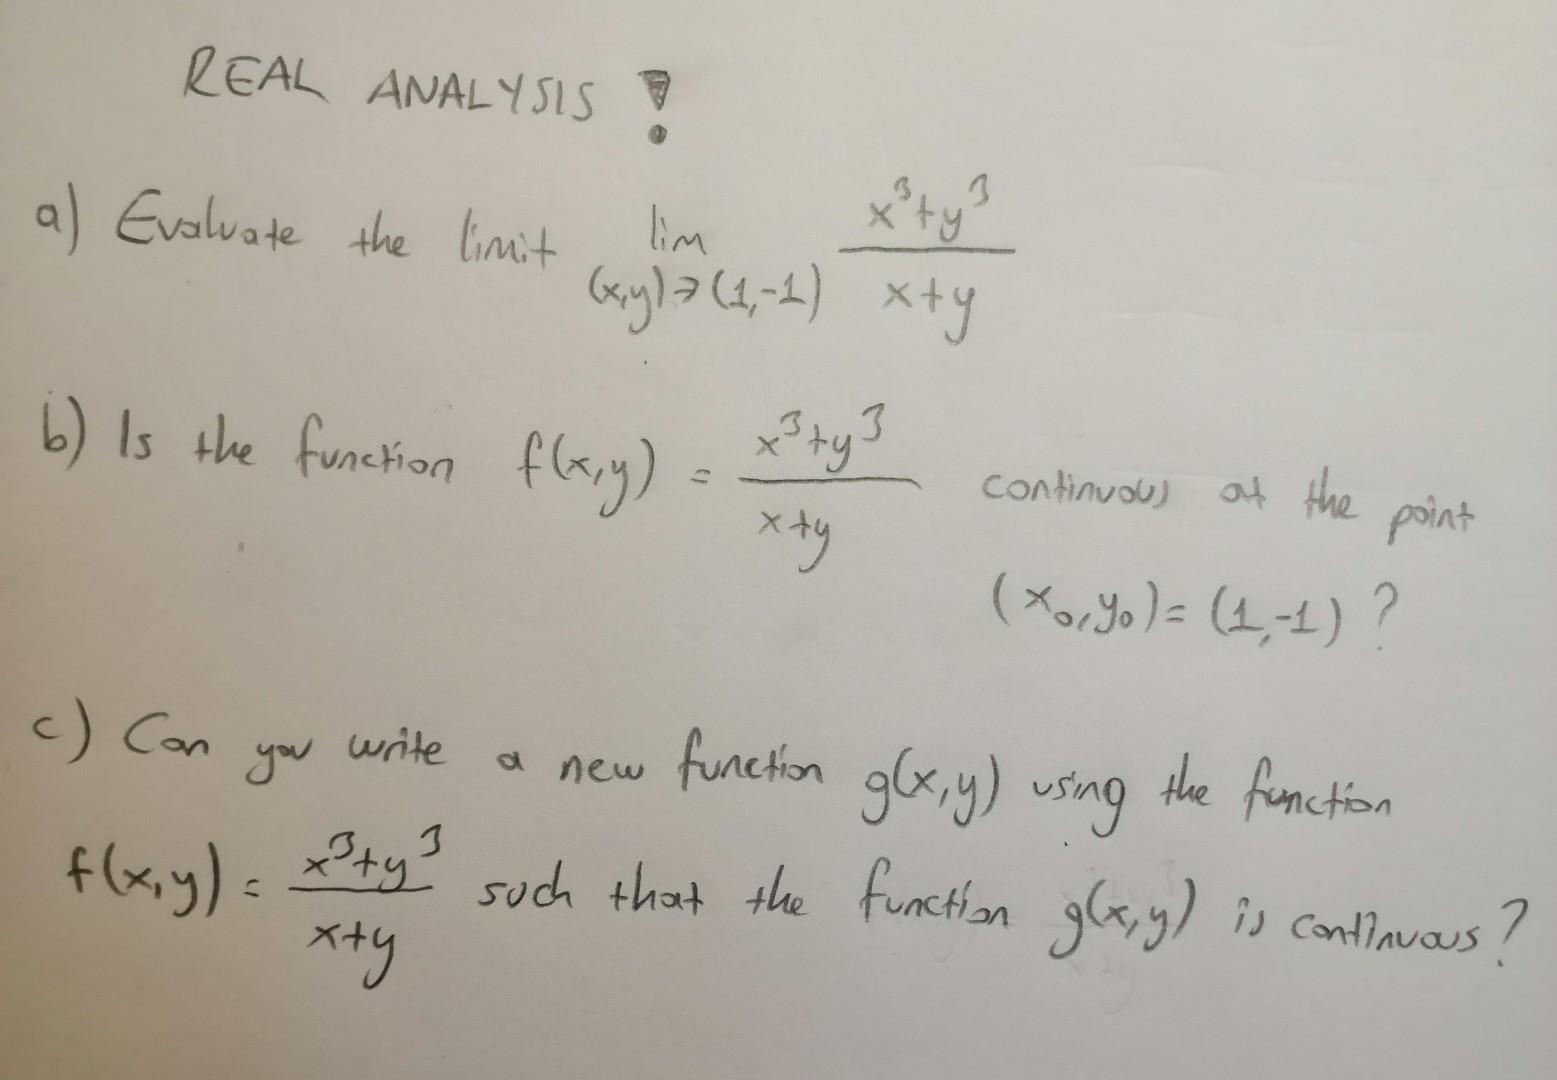 REAL ANALYSIS !
a) Evaluate the limit lim (x,y)→(1,-1) (x³+y³)/(x+y)
b) Is the function f(x,y) = (x³+y³)/(x+y) continuous at the point
(x₀,y₀)=(1,-1)?
c) Can you write a new function g(x,y) using the function
f(x,y) = (x³+y³)/(x+y) such that the function g(x,y) is continuous?